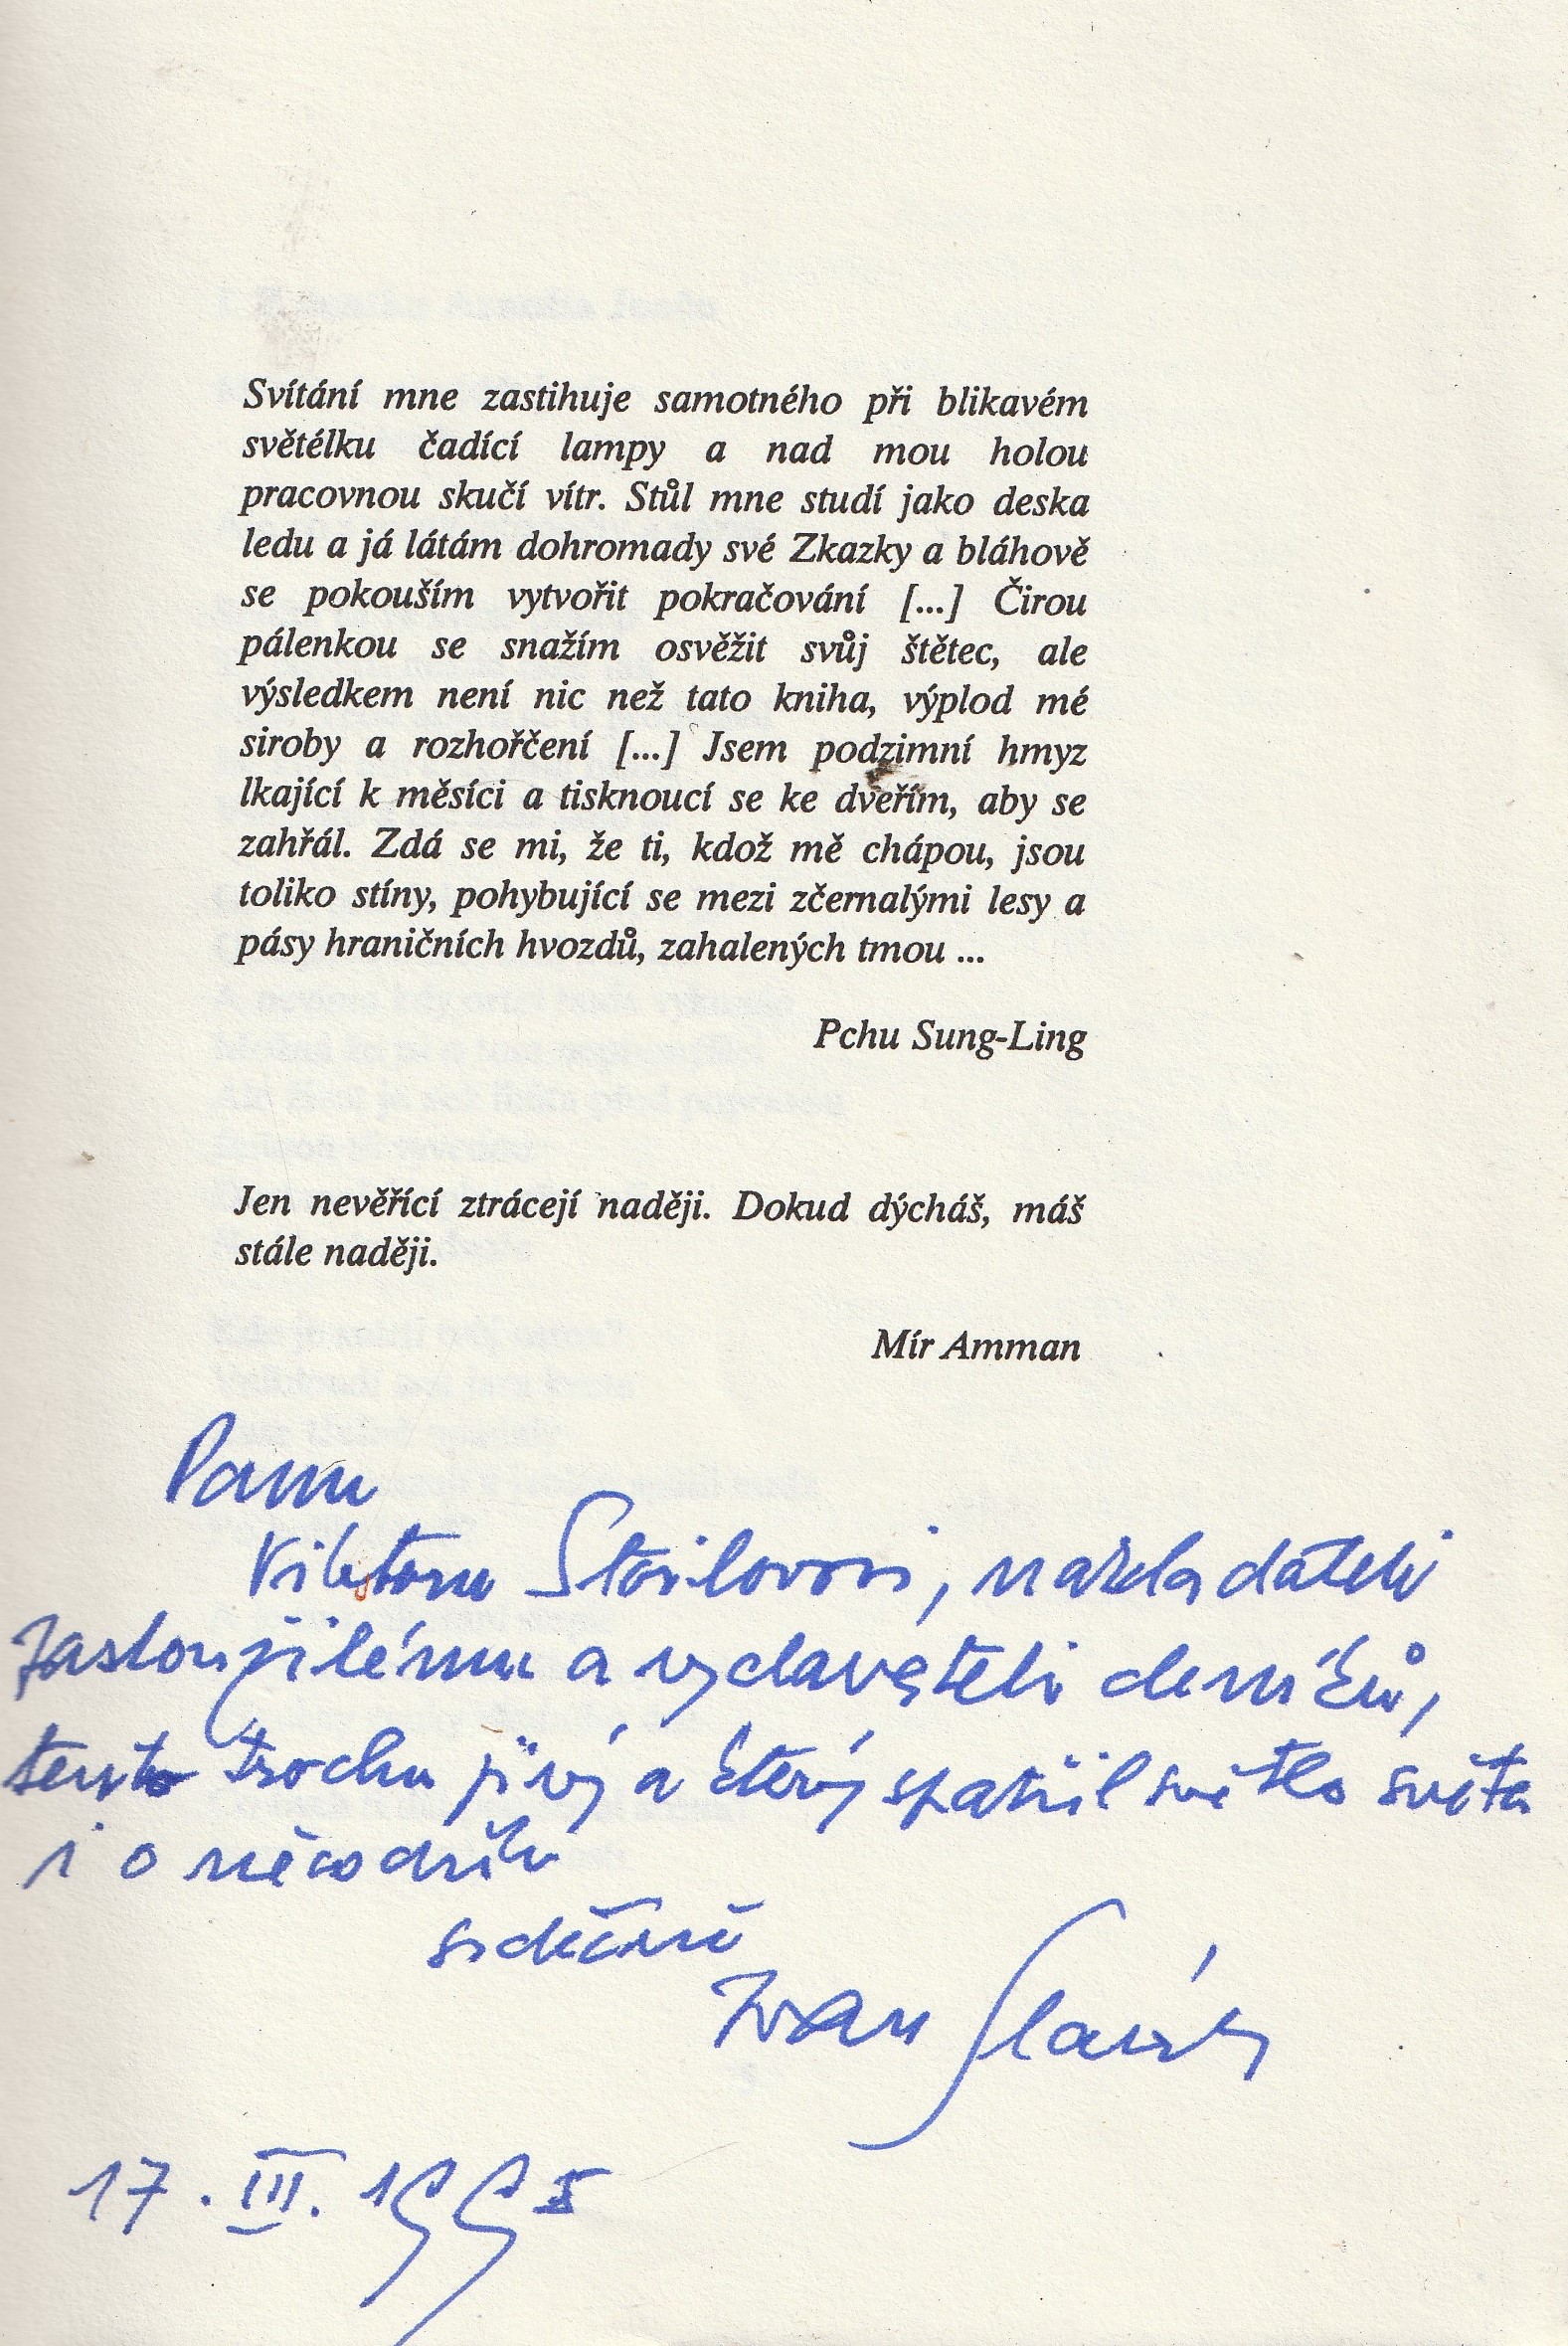 Svítání mne zastihuje samotného při blikavém
světélku čadící lampy a nad mou holou
pracovnou skučí vítr. Stůl mne studí jako deska
ledu a já látám dohromady své Zkazky a bláhově
se pokouším vytvořit pokračování [...] Čirou
pálenkou se snažím osvěžit svůj štětec, ale
výsledkem není nic než tato kniha, výplod mé
siroby a rozhořčení [...] Jsem podzimní hmyz
lkající k měsíci a tisknoucí se ke dveřím, aby se
zahřál. Zdá se mi, že ti, kdož mě chápou, jsou
toliko stíny, pohybující se mezi zčernalými lesy a
pásy hraničních hvozdů, zahalených tmou ...
Pchu Sung-Ling
Jen nevěřící ztrácejí naději. Dokud dýcháš, máš
stále naději.
Mír Amman
Panu
Viktoru Stoilovovi, nakladateli
zasloužilému a vydavateli deníků,
tento trochu jiný a který spatřil světlo světa
i o
srdečně
Ivan Slavík
17. III. 1995